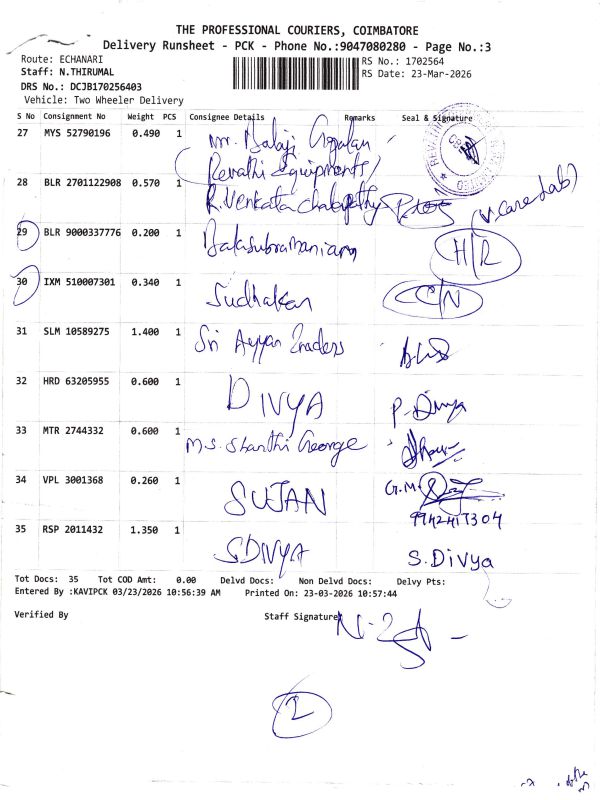 THE PROFESSIONAL COURIERS, COIMBATORE
Delivery Runsheet - PCK - Phone No.:9047080280 - Page No.:3
Route: ECHANARI
RS No.: 1702564
Staff: N.THIRUMAL
RS Date: 23-Mar-2026
DRS No.: DCJB170256403
Vehicle: Two Wheeler Delivery
S No Consignment No Weight PCS Consignee Details Remarks Seal & Signature
27 MYS 52790196 0.490 1 Mr. Balaji Gopalan
Revathi Equipments/
28 BLR 2701122908 0.570 1 R. Venkata Chalapathy (V.care Lab)
29 BLR 9000337776 0.200 1 Balasubramaniam H/R
30 IXM 510007301 0.340 1 Sudhakar C/N
31 SLM 10589275 1.400 1 Sri Ayyan Traders
32 HRD 63205955 0.600 1 DIVYA P. Divya
33 MTR 2744332 0.600 1 M.S. Shanthi George
34 VPL 3001368 0.260 1 SUJAN G.M
9942417304
35 RSP 2011432 1.350 1 S.DIVYA S.Divya
Tot Docs: 35 Tot COD Amt: 0.00 Delvd Docs: Non Delvd Docs: Delvy Pts:
Entered By :KAVIPCK 03/23/2026 10:56:39 AM Printed On: 23-03-2026 10:57:44
Verified By Staff Signature